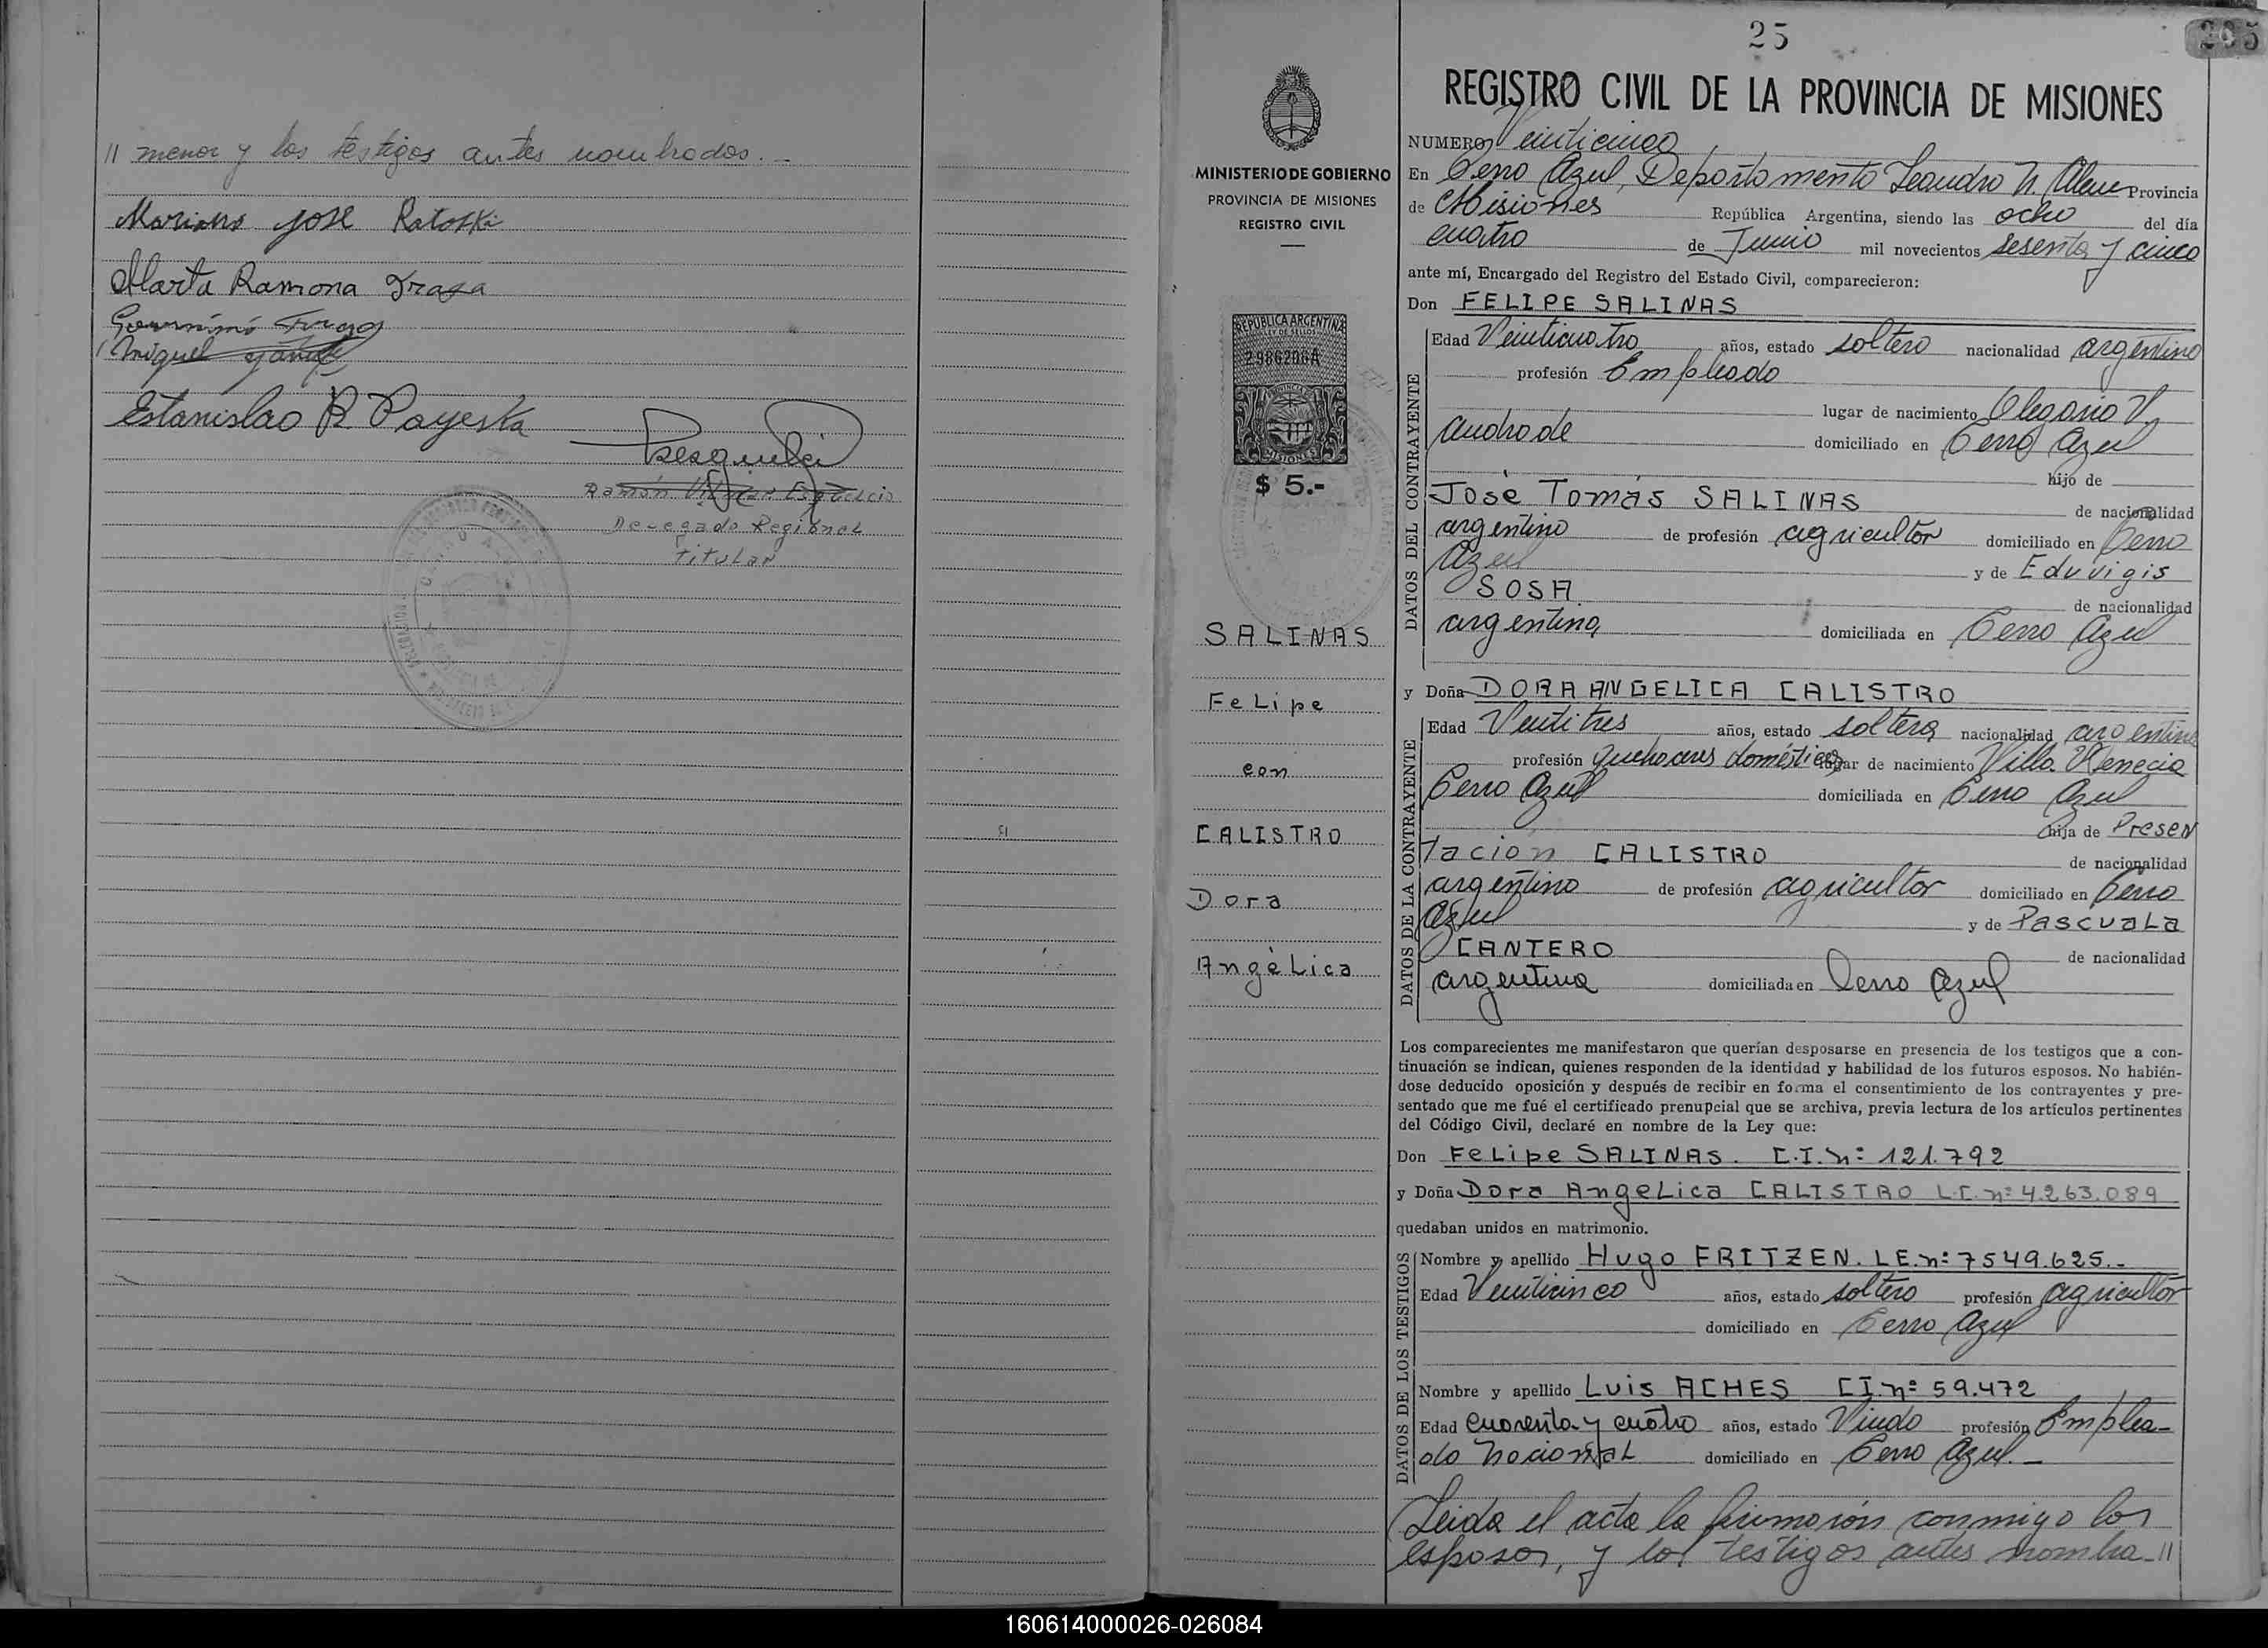 // menor y los testigos antes nombrados.-
Mariano José Ratoski
Marta Ramona Fraga
Miguel
Estanislao R. Payeska
Ramón
Delegado Regional
titular
25
REGISTRO CIVIL DE LA PROVINCIA DE MISIONES
MINISTERIO DE GOBIERNO
PROVINCIA DE MISIONES
REGISTRO CIVIL
REPUBLICA ARGENTINA
LEY DE SELLOS
2986206A
MISIONES
$ 5.-
SALINAS
Felipe
con
CALISTRO
Dora
Angélica
NUMERO Veinticinco
En Cerro Azul, Departamento Leandro N. Alem Provincia
de Misiones República Argentina, siendo las ocho del día
cuatro de Junio mil novecientos sesenta y cinco
ante mí, Encargado del Registro del Estado Civil, comparecieron:
Don FELIPE SALINAS
DATOS DEL CONTRAYENTE
Edad Veinticuatro años, estado soltero nacionalidad argentino
profesión Empleado
lugar de nacimiento Olegario V.
Andrade domiciliado en Cerro Azul
hijo de
José Tomás SALINAS de nacionalidad
argentino de profesión agricultor domiciliado en Cerro
Azul y de Eduvigis
SOSA de nacionalidad
argentina domiciliada en Cerro Azul
y Doña DORA ANGELICA CALISTRO
DATOS DE LA CONTRAYENTE
Edad Veintitres años, estado soltera nacionalidad argentina
profesión quehaceres domésticos lugar de nacimiento Villa Venecia
Cerro Azul domiciliada en Cerro Azul
hija de Presen
tación CALISTRO de nacionalidad
argentino de profesión agricultor domiciliado en Cerro
Azul y de Pascuala
CANTERO de nacionalidad
argentina domiciliada en Cerro Azul
Los comparecientes me manifestaron que querían desposarse en presencia de los testigos que a con-
tinuación se indican, quienes responden de la identidad y habilidad de los futuros esposos. No habién-
dose deducido oposición y después de recibir en forma el consentimiento de los contrayentes y pre-
sentado que me fué el certificado prenupcial que se archiva, previa lectura de los artículos pertinentes
del Código Civil, declaré en nombre de la Ley que:
Don Felipe SALINAS. C.I. nº 121.792
y Doña Dora Angelica CALISTRO L.C. nº 4.263.089
quedaban unidos en matrimonio.
DATOS DE LOS TESTIGOS
Nombre y apellido Hugo FRITZEN. L.E. nº 7549.625.-
Edad Veinticinco años, estado soltero profesión agricultor
domiciliado en Cerro Azul
Nombre y apellido Luis ACHES C.I. nº 59.472
Edad cuarenta y cuatro años, estado Viudo profesión Emplea-
do nacional domiciliado en Cerro Azul.-
Leida el acta la firmaron conmigo los
esposos, y los testigos antes nombra-//
160614000026-026084